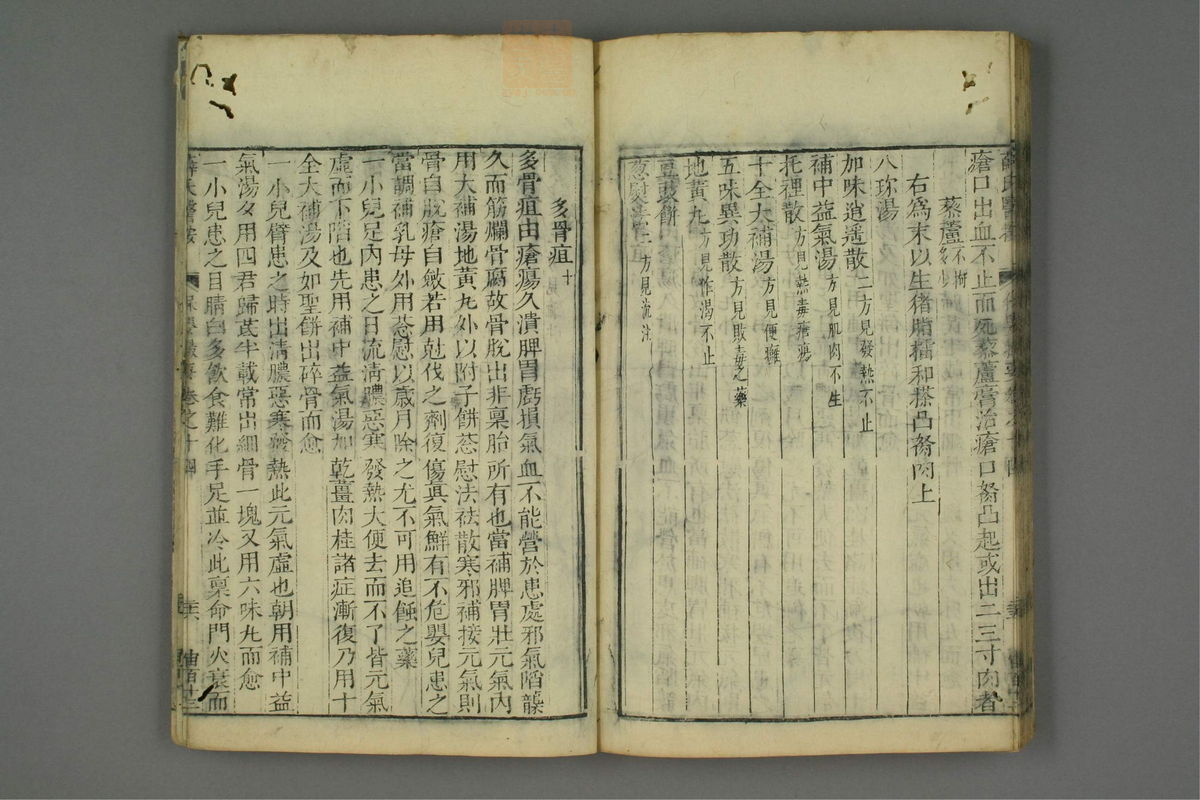 瘡口出血不止而死藜蘆膏治瘡口胬凸起或出二三寸肉者
藜蘆不拘多少
右爲末以生猪脂擂和搽凸胬肉上
八珎湯
加味逍遥散二方見發熱不止
補中益氣湯方見肌肉不生
托裡散方見熱毒瘡瘍
十全大補湯方見便癰
五味異功散方見敗毒之藥
地黃丸方見作渴不止
豆豉餅
葱熨法二方見流注
多骨疽十
多骨疽由瘡瘍久潰脾胃虧損氣血不能營於患處邪氣陷襲
久而筋爛骨腐故骨脫出非稟胎所有也當補脾胃壯元氣內
用大補湯地黃丸外以附子餅葱熨法祛散寒邪補接元氣則
骨自脫瘡自斂若用尅伐之劑復傷眞氣鮮有不危嬰兒患之
當調補乳母外用葱熨以歲月除之尤不可用追蝕之藥
一小兒足內患之日流清膿惡寒發熱大便去而不了皆元氣
虛而下陷也先用補中益氣湯加乾薑肉桂諸症漸復乃用十
全大補湯及如聖餅出碎骨而愈
一小兒臂患之時出清膿惡寒發熱此元氣虛也朝用補中益
氣湯夕用四君歸芪半載常出細骨一塊又用六味丸而愈
一小兒患之目睛白多飲食難化手足並冷此稟命門火衰而
薛氏醫案 保嬰撮要卷之十四